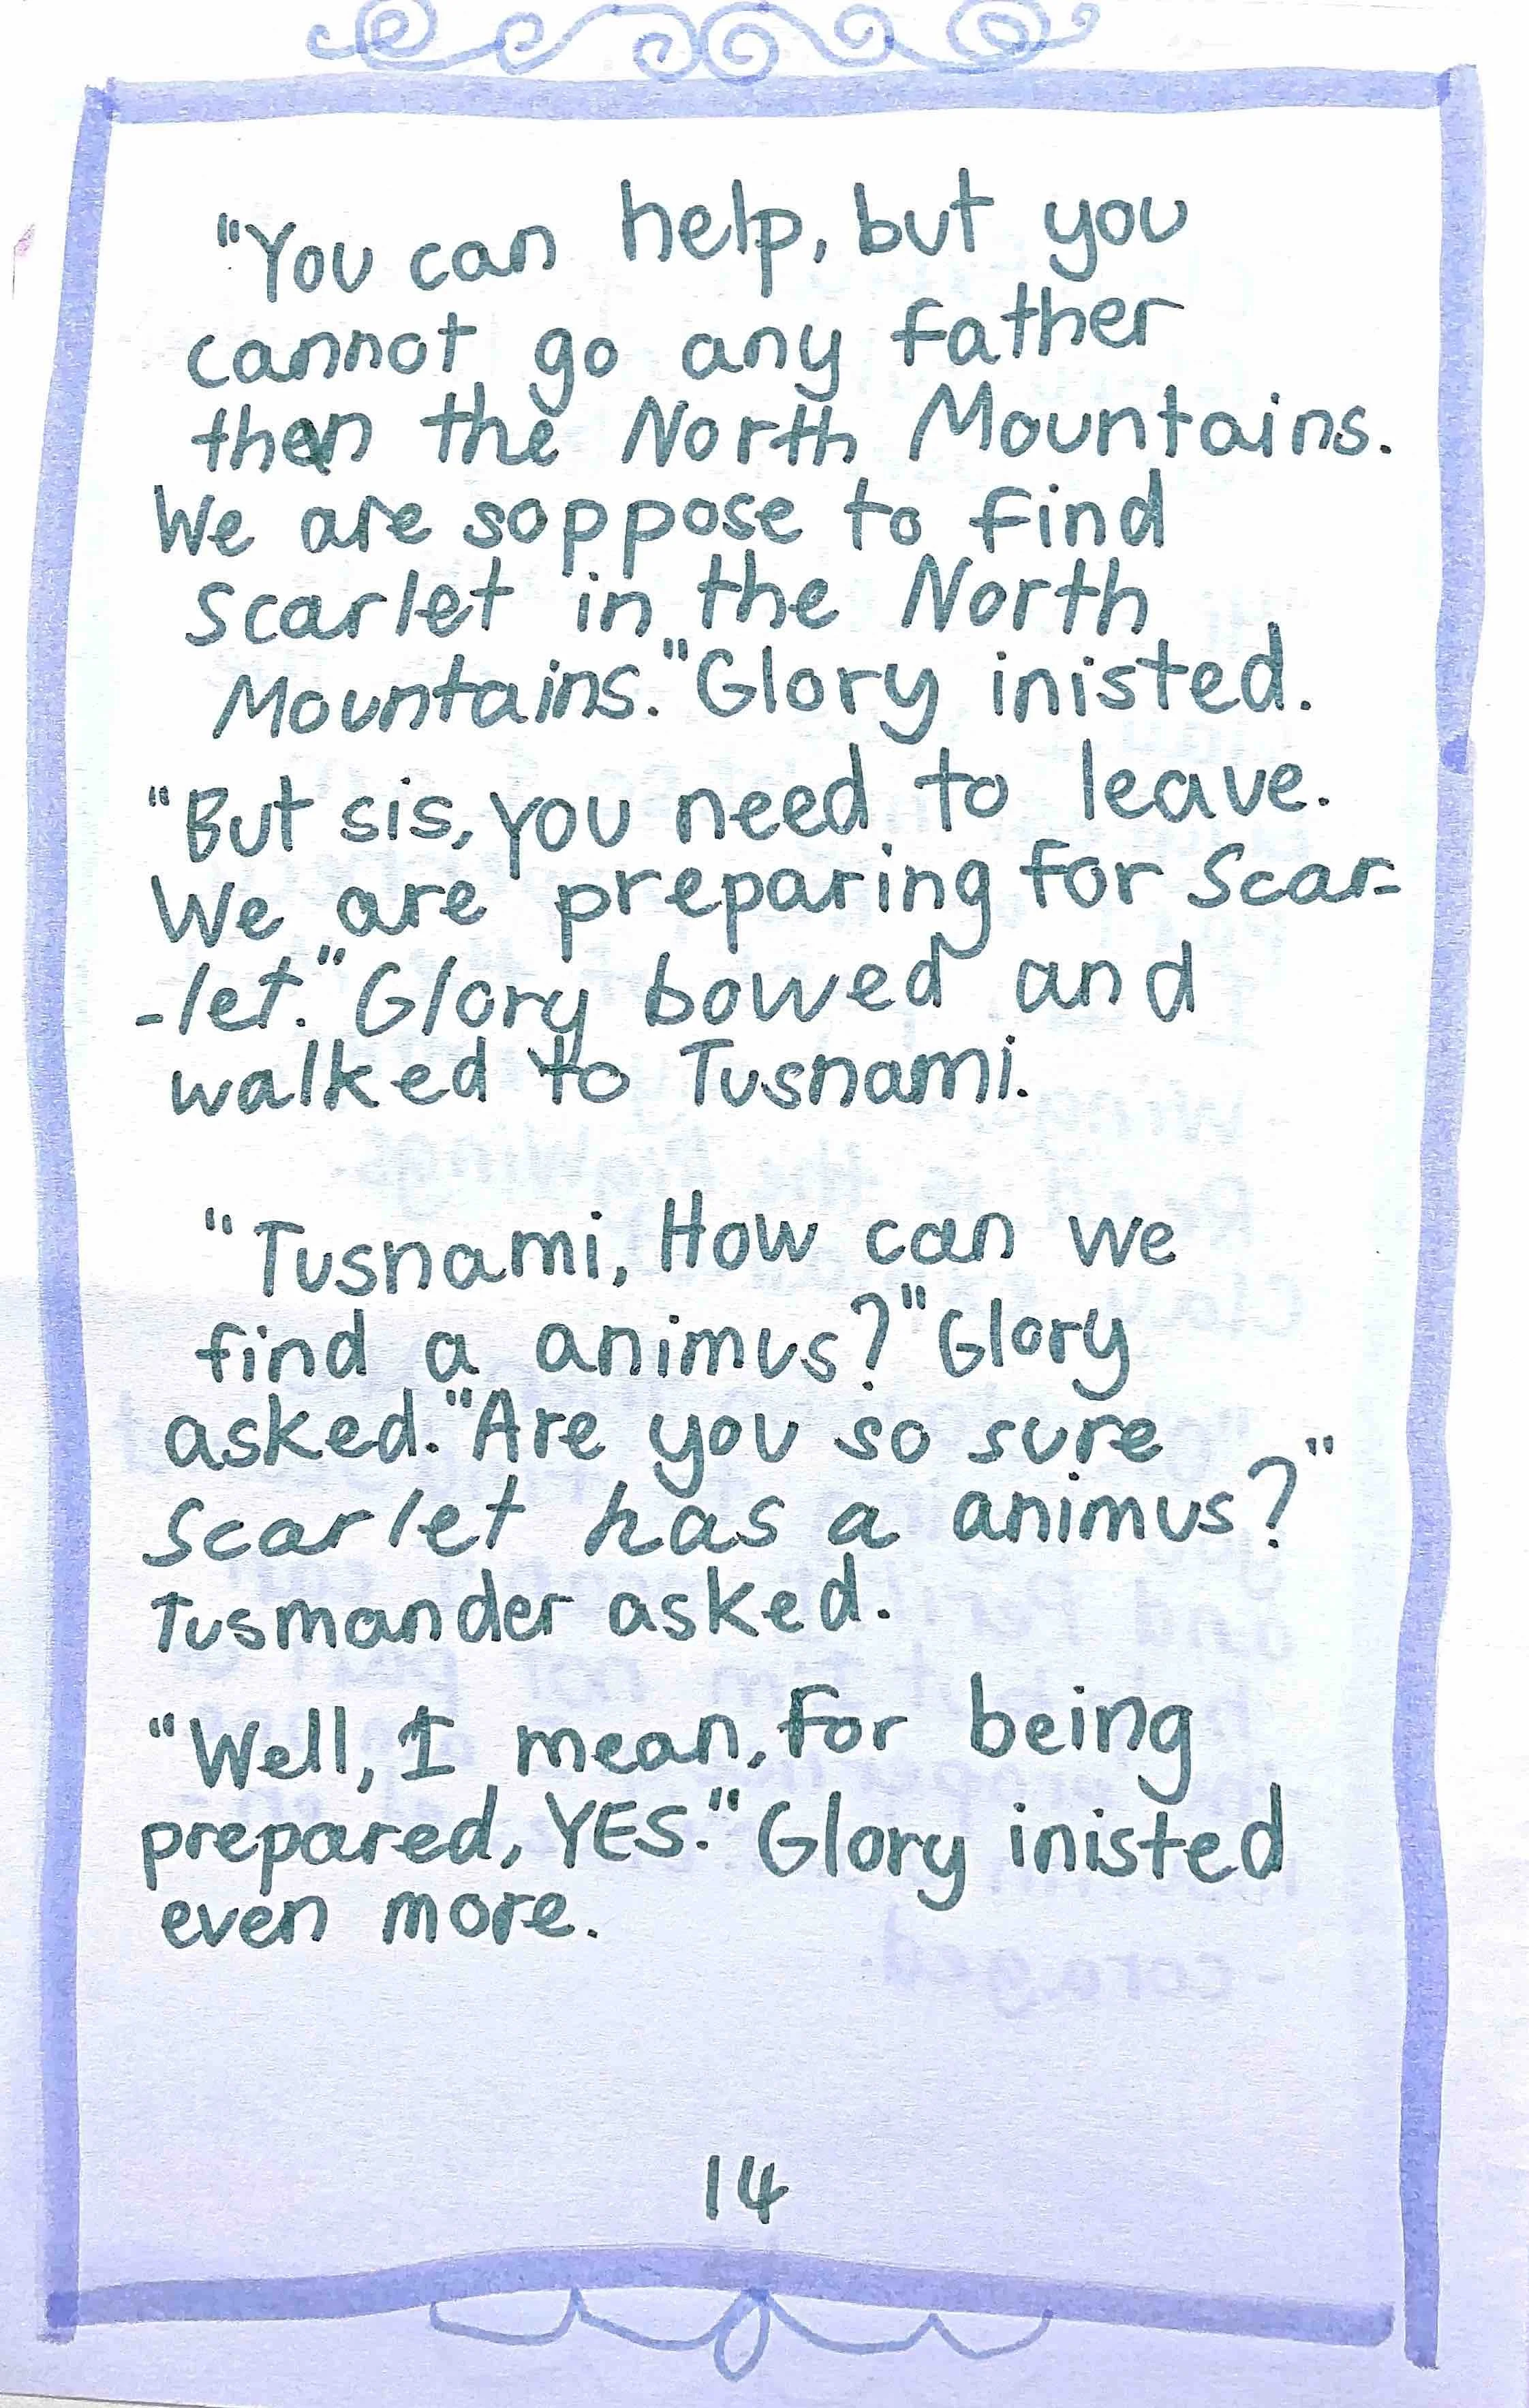 "You can help, but you
cannot go any father
than the North Mountains.
We are soppose to find
Scarlet in the North
Mountains." Glory inisted.
"But sis, you need to leave.
We are preparing for Scar-
-let." Glory bowed and
walked to Tusnami.
"Tusnami, How can we
find a animus?" Glory
asked. "Are you so sure
Scarlet has a animus?"
Tusmander asked.
"Well, I mean, for being
prepared, YES." Glory inisted
even more.
14